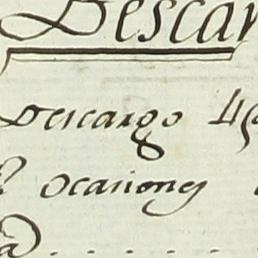 Descar
Descargo 4
ocasiones